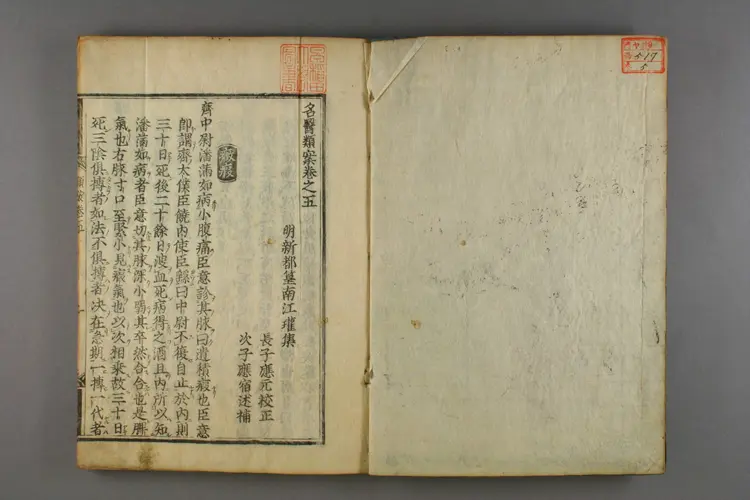 名醫類案卷之五
明新都篁南江瓘集
長子應元校正
次子應宿述補
癥瘕
齊中尉潘滿如病小腹痛臣意診其脉曰遺積瘕也臣意
即謂齊太僕臣饒内史臣繇曰中尉不復自止於内則
三十日死後二十餘日溲血死病得之酒且内所以知
潘滿如病者臣意切其脉深小弱其卒然合合也是脾
氣也右脉寸口至緊小見瘕氣也以次相乘故三十日
死三陰俱搏者如法不俱搏者决在急期一搏一代者
5 17
5